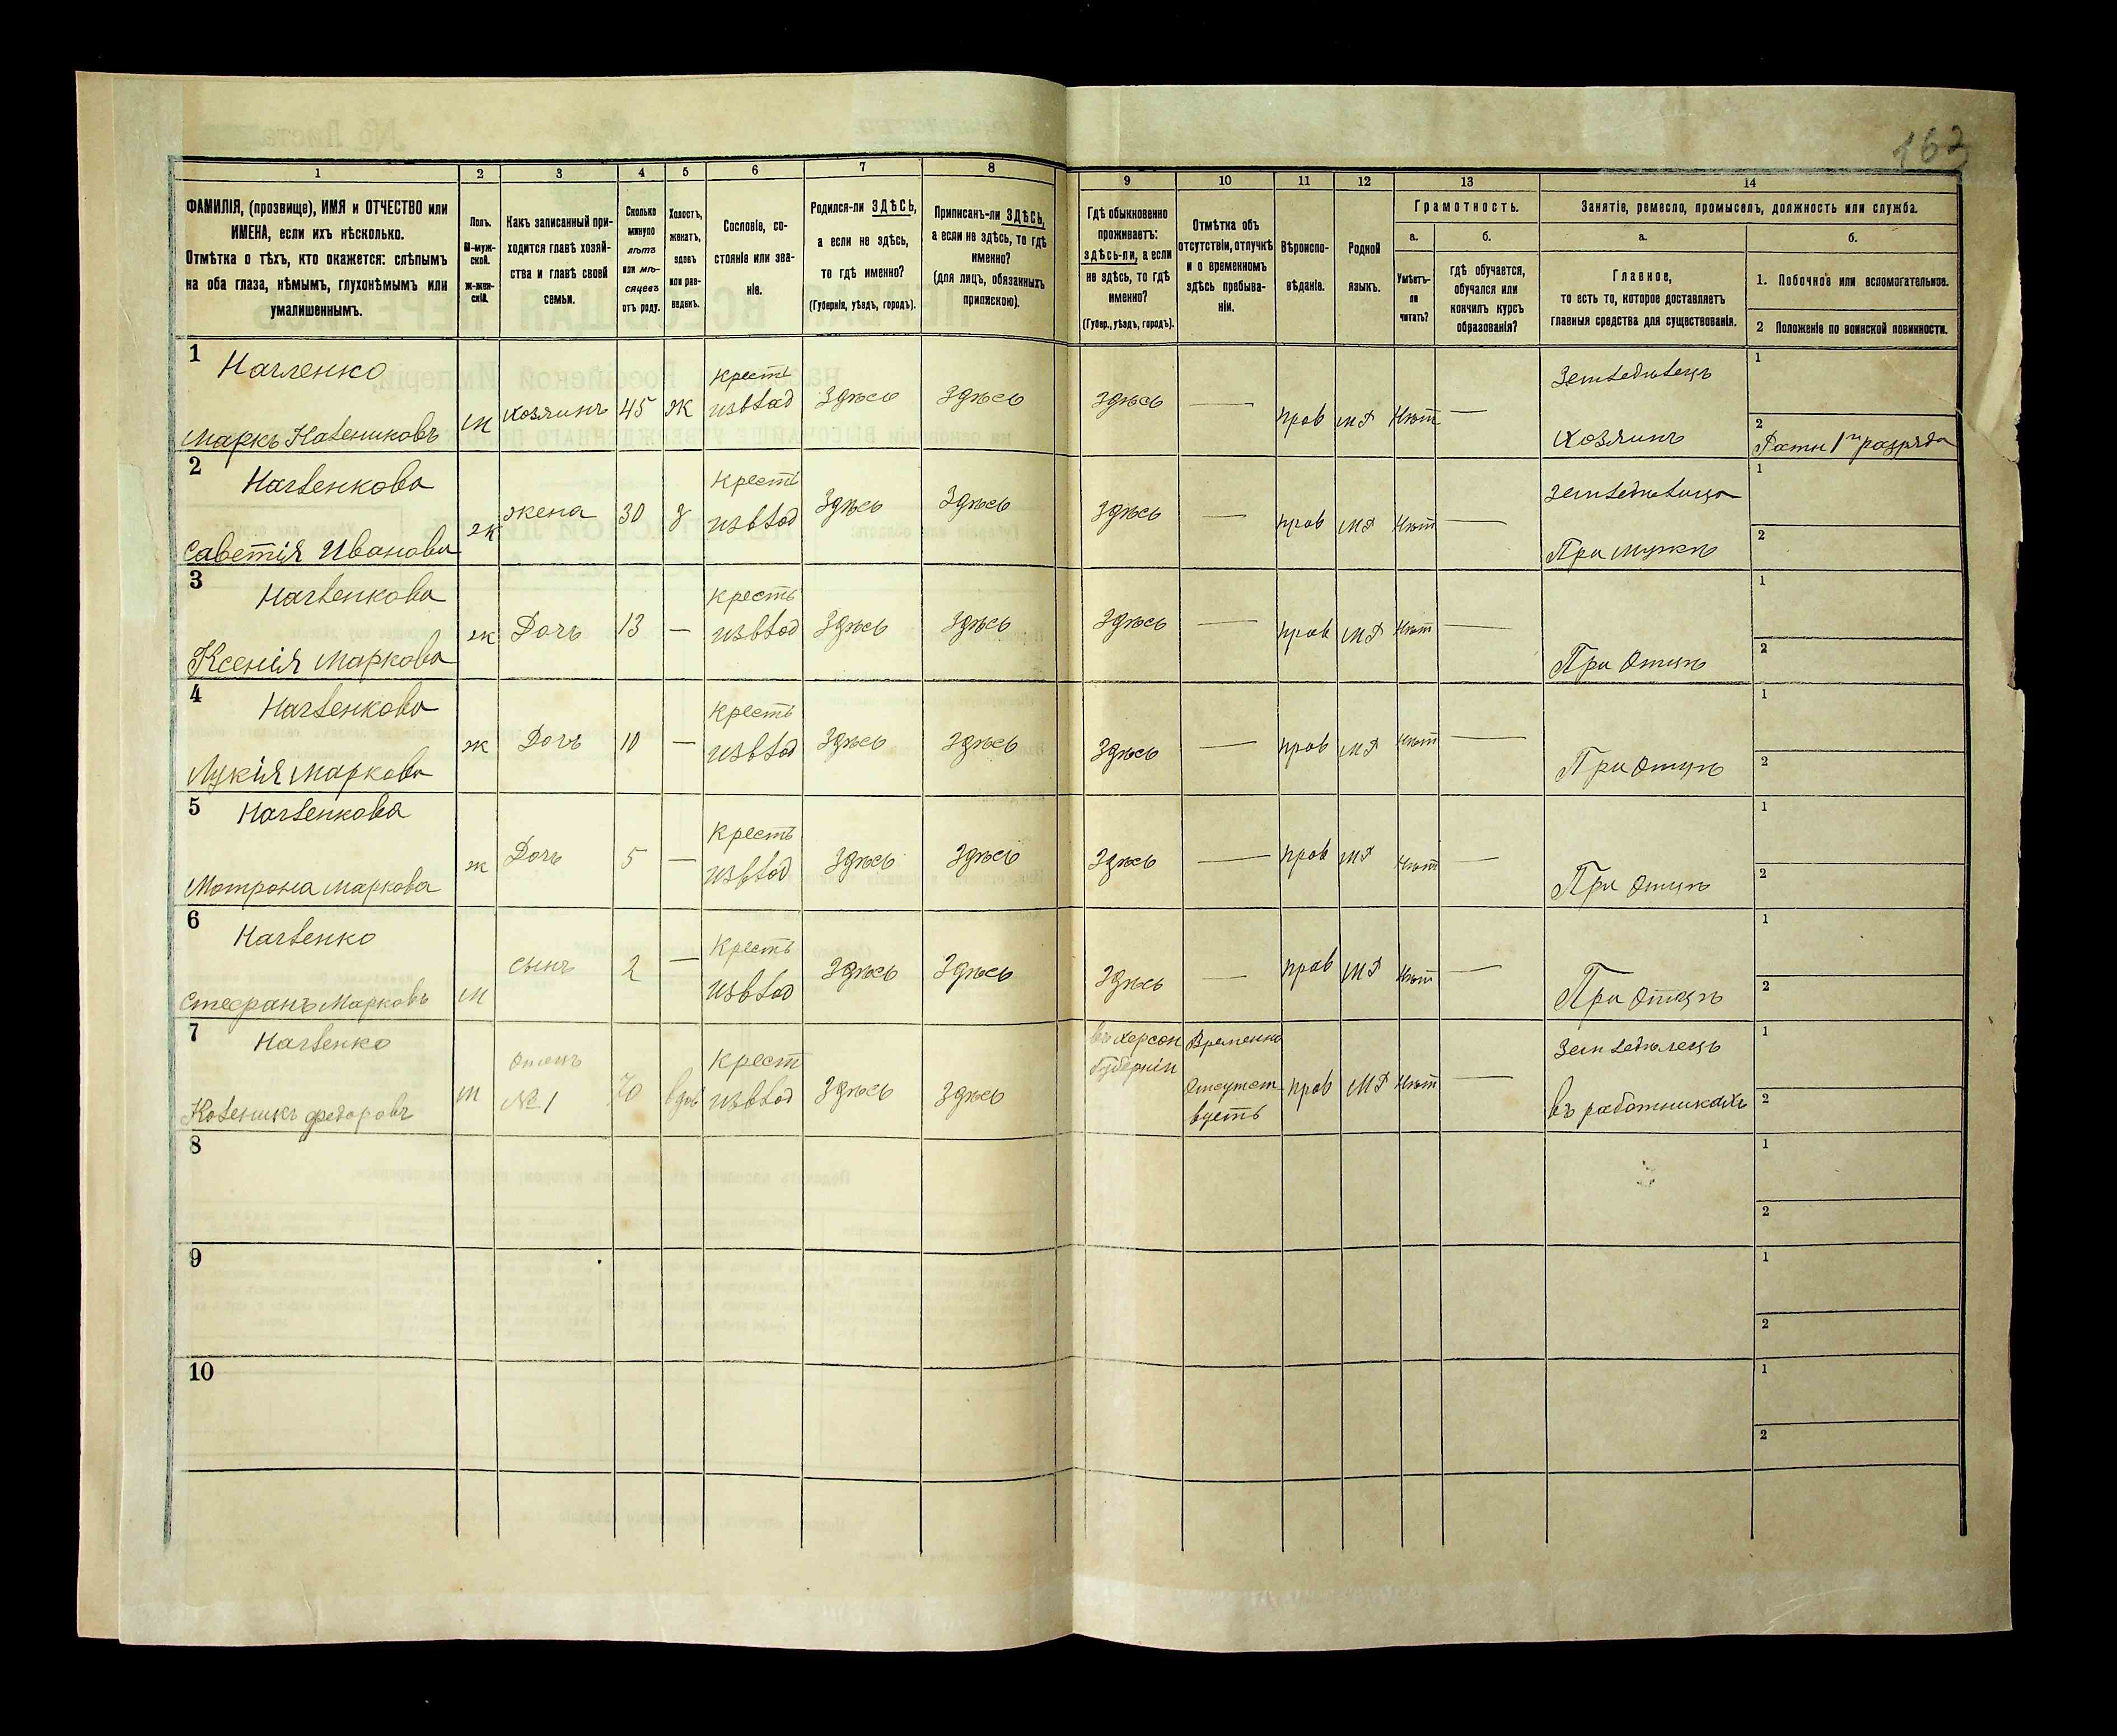 163
1 2 3 4 5 6 7 8 9 10 11 12 13 14
ФАМИЛІЯ, (прозвище), ИМЯ и ОТЧЕСТВО или
ИМЕНА, если ихъ нѣсколько.
Отмѣтка о тѣхъ, кто окажется: слѣпымъ
на оба глаза, нѣмымъ, глухонѣмымъ или
умалишеннымъ.
Полъ.
М-муж-
ской.
Ж-жен-
скій.
Какъ записанный при-
ходится главѣ хозяй-
ства и главѣ своей
семьи.
Сколько
минуло
лѣтъ
или мѣ-
сяцевъ
отъ роду.
Холостъ,
женатъ,
вдовъ
или раз-
веденъ.
Сословіе, со-
стояніе или зва-
ніе.
Родился-ли ЗДѢСЬ,
а если не здѣсь,
то гдѣ именно?
(Губернія, уѣздъ, городъ).
Приписанъ-ли ЗДѢСЬ,
а если не здѣсь, то гдѣ
именно?
(для лицъ, обязанныхъ
припискою).
Гдѣ обыкновенно
проживаетъ:
здѣсь-ли, а если
не здѣсь, то гдѣ
именно?
(Губер., уѣздъ, городъ).
Отмѣтка объ
отсутствіи, отлучкѣ
и о временномъ
здѣсь пребыва-
ніи.
Вѣроиспо-
вѣданіе.
Родной
языкъ.
Грамотность.
а.
Умѣетъ-
ли
читать?
б.
гдѣ обучается,
обучался или
кончилъ курсъ
образованія?
Занятіе, ремесло, промыселъ, должность или служба.
а.
Главное,
то есть то, которое доставляетъ
главныя средства для существованія.
б.
1. Побочное или вспомогательное.
2 Положеніе по воинской повинности.
1 Нагленко Крестъ Земледѣлецъ 1
Маркъ Каленниковъ м хозяинъ 45 ж из влад Здѣсь Здѣсь Здѣсь — прав МР Нѣт — Хозяинъ 2 Ратн 1го разряда
2 Нагленкова Крестъ Земледѣлица 1
Саветія Иванова ж жена 30 з из влад Здѣсь Здѣсь Здѣсь — прав МР Нѣт — При мужѣ 2
3 Нагленкова Крестъ 1
Ксенія Маркова ж Дочь 13 — из влад Здѣсь Здѣсь Здѣсь — прав МР Нѣт — При Отцѣ 2
4 Нагленкова Крестъ 1
Лукія Маркова ж Дочь 10 — из влад Здѣсь Здѣсь Здѣсь — прав МР Нѣт — При Отцѣ 2
5 Нагленкова Крестъ 1
Мотрона Маркова ж Дочь 5 — из влад Здѣсь Здѣсь Здѣсь — прав МР Нѣт — При Отцѣ 2
6 Нагленко Крестъ 1
Стефранъ Марковъ м сынъ 2 — из влад Здѣсь Здѣсь Здѣсь — прав МР Нѣт — При Отцѣ 2
7 Нагленко Отецъ Крест въ Херсон Временно Земледѣлецъ 1
Каленикъ Федоровъ м №1 70 вдов из влад Здѣсь Здѣсь губерніи Отсутст прав МР Нѣт — въ работникахъ 2
вуетъ
8 1
2
9 1
2
10 1
2